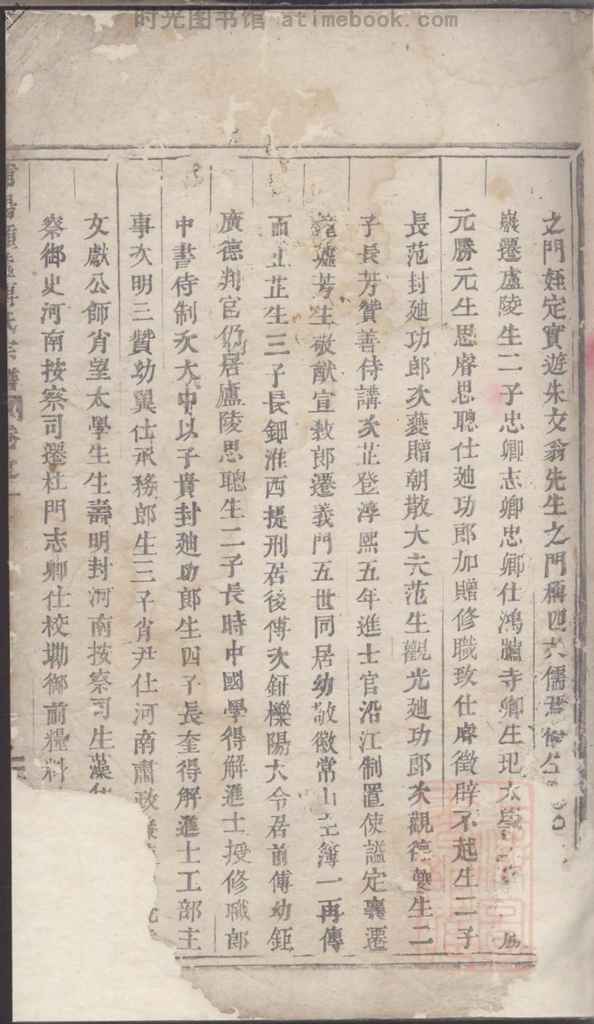 时光图书馆 atimebook.com
之門姪定實遊朱文翁先生之門稱四大儒
襄遷廬陵生二子忠卿志卿忠卿仕鴻臚寺卿生玘太學
元勝元生思睿思聰仕廸功郎加贈修職致仕睿徵辟不起生二子
長范封廸功郎次襲贈朝散大夫范生觀光廸功郎次觀德雙生二
子長芳贊善侍講次芷登淳熙五年進士官沿江制置使諡定襄遷
蘆芳生敬猷宣教郎遷義門五世同居幼敬徽常山主簿一再傳
而止芷生三子長鈿淮西提刑居後傅次鉦櫟陽大令居前傅幼鉅
廣德判官仍居廬陵思聰生二子長時中國學得解進士授修職郎
中書侍制次大中以子貴封廸功郎生四子長奎得解進士工部主
事次明三贊幼翼仕承務郎生三子肖尹仕河南肅政
文獻公師肖望太學生生壽明封河南按察司生藻
察御史河南按察司遷杜門志卿仕校勘御前糧料
氏宗譜 卷之一